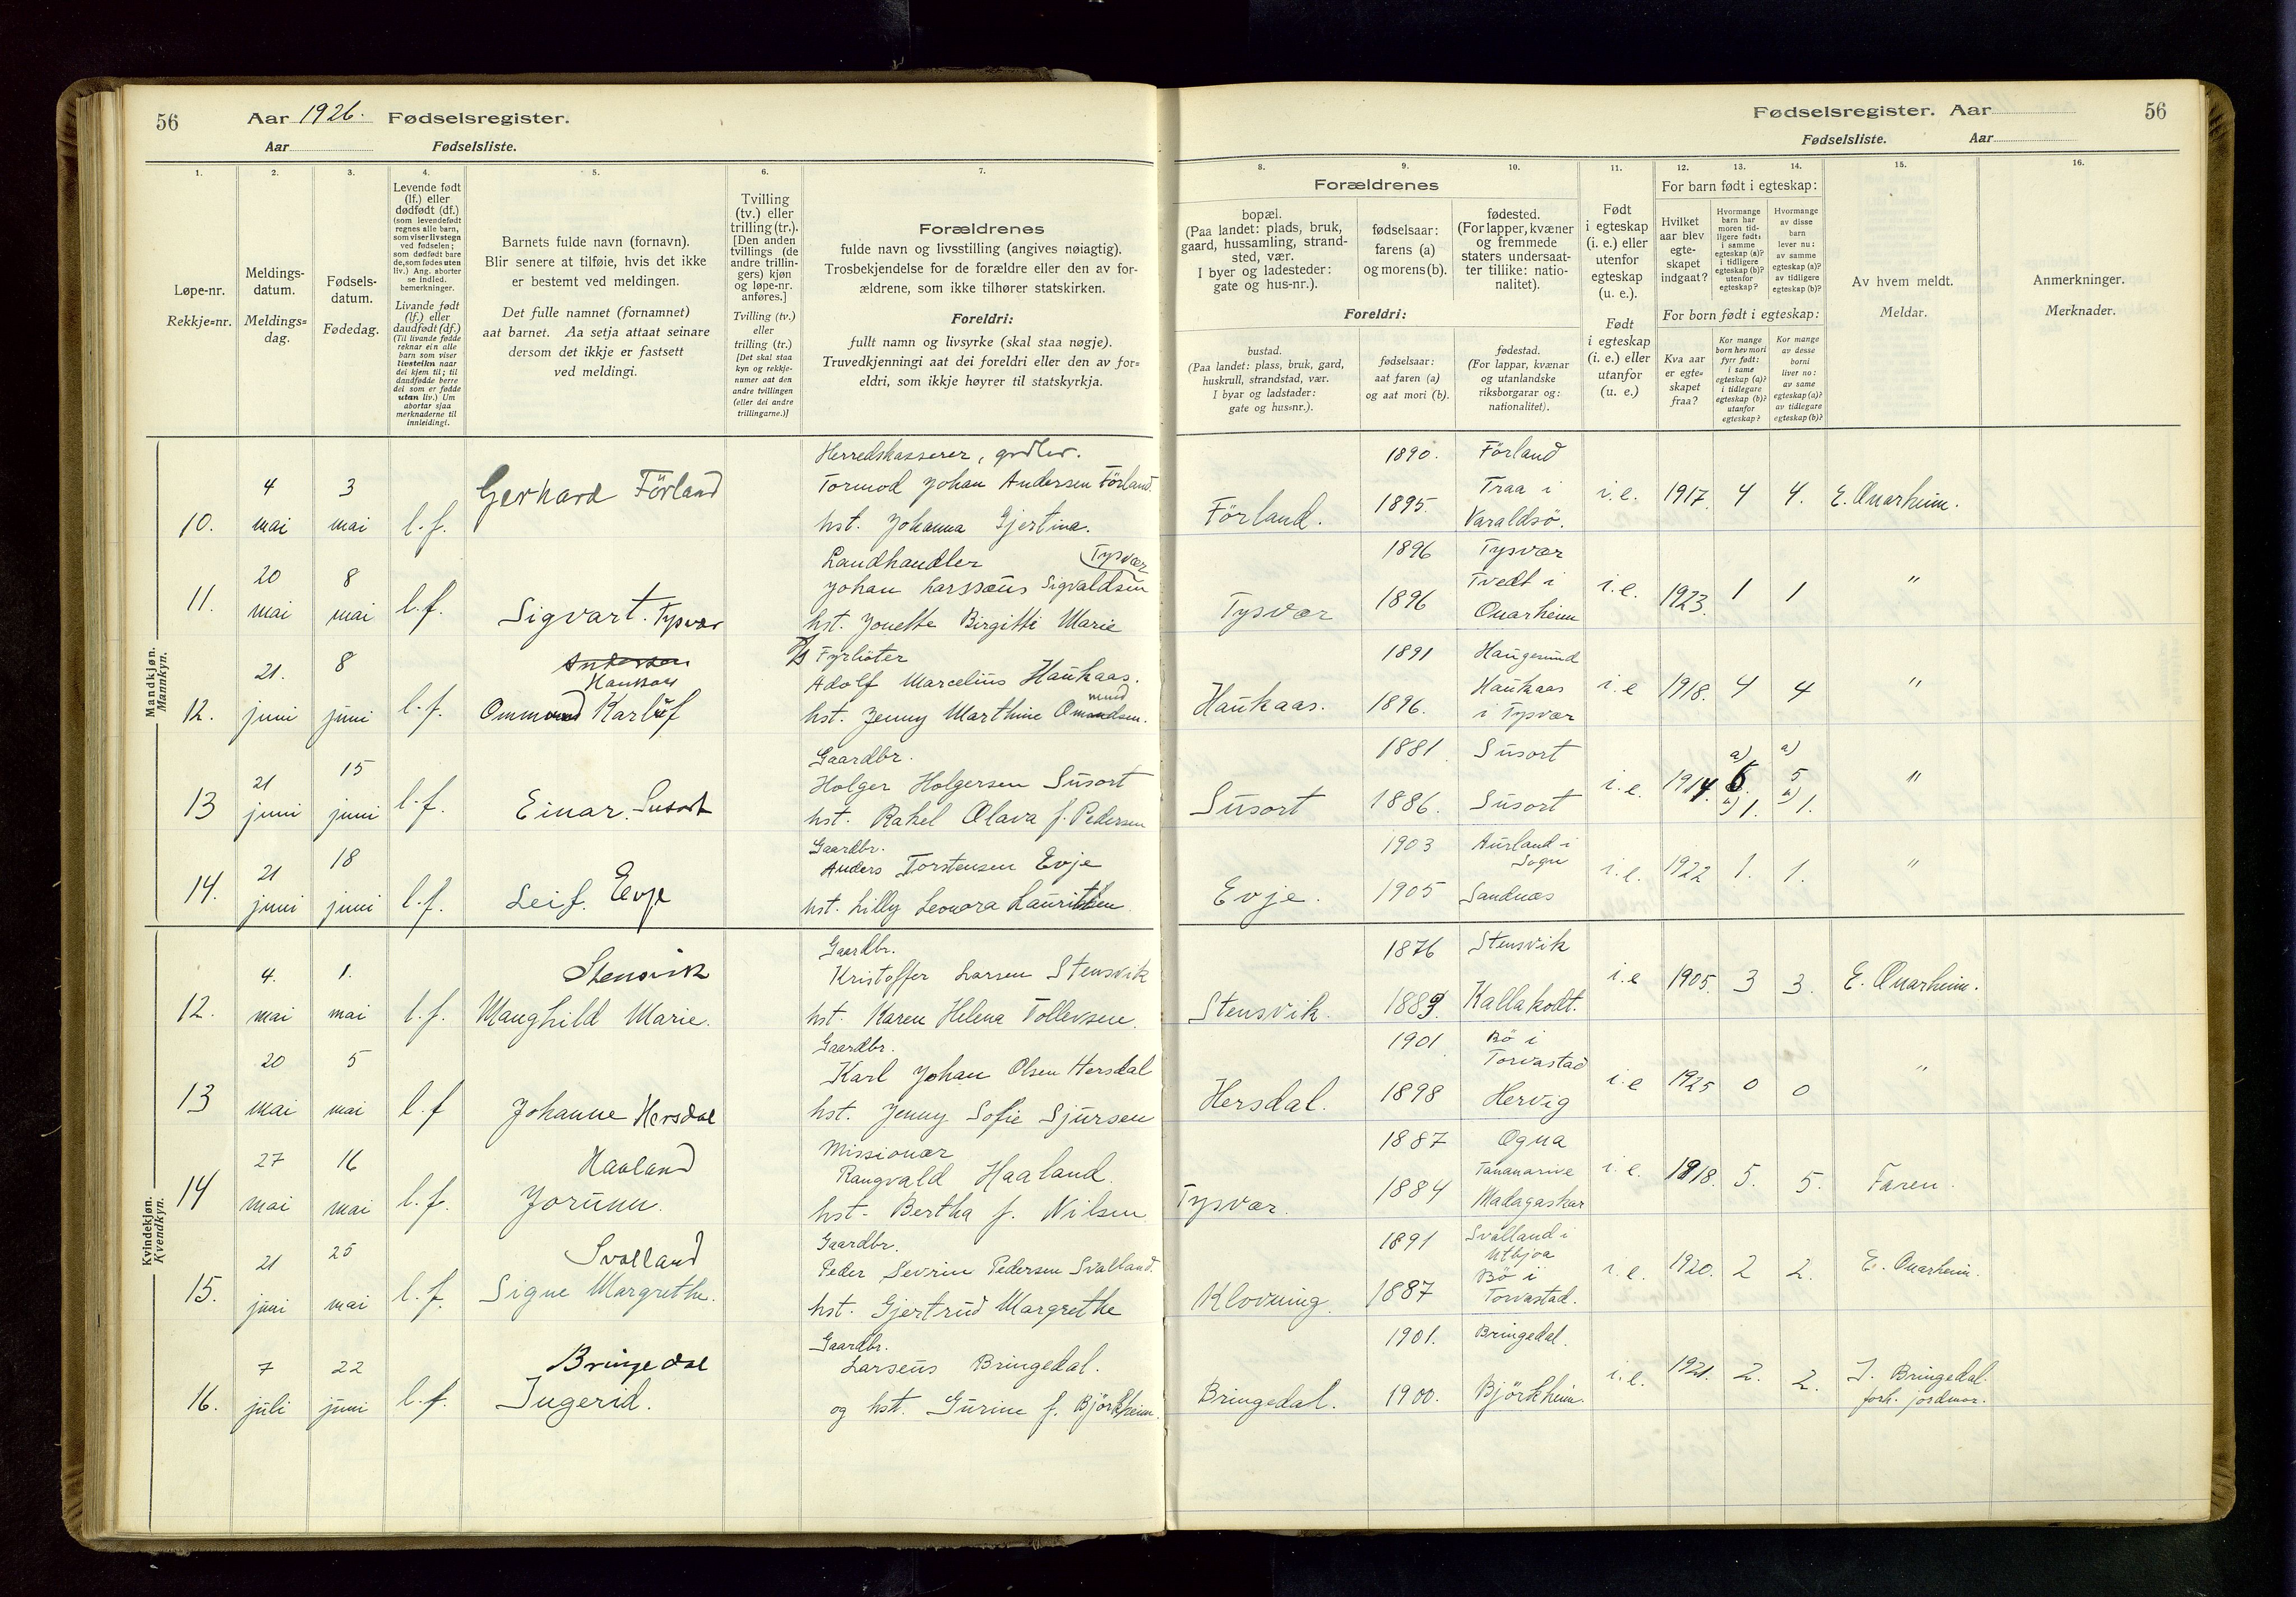 56
Aar 1926. Fødselsregister.
Aar Fødselsliste.
Fødselsregister. Aar
56
Fødselsliste. Aar
1.
Løpe-nr.
Rekkje=nr.
2.
Meldings-
datum.
Meldings=
dag.
3.
Fødsels-
datum.
Fødedag.
4.
Levende født
(lf.) eller
dødfødt (df.)
(som levendefødt
regnes alle barn,
som viser livstegn
ved fødselen;
som dødfødt bare
de, som fødes uten
liv.) Ang. aborter
se indled.
bemerkninger.
Livande født
(lf.) eller
daudfødt (df.)
(Til livande fødde
reknar ein alle
barn som viser
livsteikn naar
dei kjem til; til
daudfødde berre
dei som er fødde
utan liv.) Um
abortar sjaa
merknaderne til
innleidingi.
5.
Barnets fulde navn (fornavn).
Blir senere at tilføie, hvis det ikke
er bestemt ved meldingen.
Det fulle namnet (fornamnet)
aat barnet. Aa setja attaat seinare
dersom det ikkje er fastsett
ved meldingi.
6.
Tvilling
(tv.) eller
trilling (tr.).
[Den anden
tvillings (de
andre trillin-
gers) kjøn
og løpe-nr.
anføres.]
Tvilling (tv.)
eller
trilling (tr.)
[Det skal staa
kyn og rekkje-
numer aat den
andre tvillingen
(eller dei andre
trillingarne.)]
7.
Forældrenes
fulde navn og livsstilling (angives nøiagtig).
Trosbekjendelse for de forældre eller den av for-
ældrene, som ikke tilhører statskirken.
Foreldri:
fullt namn og livsyrke (skal staa nøgje).
Truvedkjenningi aat dei foreldri eller den av for=
eldri, som ikkje høyrer til statskyrkja.
8.
Forældrenes
bopæl.
(Paa landet: plads, bruk,
gaard, hussamling, strand-
sted, vær.
I byer og ladesteder:
gate og hus-nr.).
Foreldri:
bustad.
(Paa landet: plass, bruk, gard,
huskrull, strandstad, vær.
I byar og ladstader:
gate og hus=nr.).
9.
fødselsaar:
farens (a)
og morens (b).
fødselsaar:
aat faren (a)
og aat mori (b).
10.
fødested.
(For lapper, kvæner
og fremmede
staters undersaat-
ter tillike: natio-
nalitet).
fødestad.
(For lappar, kvænar
og utanlandske
riksborgarar og:
nationalitet).
11.
Født
i egteskap
(i. e.) eller
utenfor
egteskap
(u. e.).
Født
i egteskap
(i. e.) eller
utanfor
(u. e.)
12.
13.
14.
For barn født i egteskap:
Hvilket
aar blev
egte-
skapet
indgaat?
Hvormange
barn har
moren tid-
ligere født:
i samme
egteskap (a)?
i tidligere
egteskap (b)?
utenfor
egteskap?
Hvormange
av disse
barn
lever nu:
av samme
egteskap (a)?
av tidligere
egteskap (b)?
For born født i egteskap:
Kva aar
er egte=
skapet
fraa?
Kor mange
born hev mori
fyrr født:
i same
egteskap (a)?
i tidlegare
egteskap (b)?
utanfor
egteskap?
Kor mange
av desse
borni
liver no:
av same
egteskap (a)?
av tidlegare
egteskap (b)?
15.
Av hvem meldt.
Meldar.
16.
Anmerkninger.
Merknader.
Mandkjøn.
Mannkyn.
10. 4 mai 3 mai l.f. Gerhard Förland
Herredskasserer, grdbr.
Tormod Johan Andersen Förland.
hst. Johanna Gjertine.
Förland. 1890. Förland
1895. Traa i
Varaldsö.
i.e. 1917. 4 4. E. Qvarheim.
11. 20 mai 8 mai l.f. Sigvart. Tysvær
Landhandler Tysvær
Johan Larssens Sigvaldsen
hst. Jonette Birgitte Marie
Tysvær 1896 Tysvær
1896 Tvedt i
Qvarheim
i.e. 1923. 1 1 "
12. 21. juni 8 juni l.f. Haukaas
Ommund Karluf
Fyrböter
Adolf Marcelius Haukaas.
hst. Jenny Marthine Omundsen.
Haukaas. 1891 Haugesund
1896. Haukaas
i Tysvær
i.e 1918. 4 4 "
13 21 juni 15 juni l.f. Einar. Susort
Gaardbr.
Holger Holgersen Susort
hst. Rahel Olava f. Pedersen
Susort 1881 Susort
1886. Susort
i.e. 1914. a) 6. 1. a) 5 1. "
14. 21 juni 18 juni l.f. Leif. Evje
Gaardbr.
Anders Torstensen Evje
hst. Lilly Leonora Lauritsen
Evje. 1903 Aurland i
Sogn
1905 Sandnæs
i.e. 1922 1. 1. "
Kvindekjøn.
Kvendkyn.
12. 4. mai 1. mai l.f. Stensvik
Maughild Marie.
Gaardbr.
Kristoffer Larsen Stensvik
hst. Karen Helena Tollevsen.
Stensvik. 1876 Stensvik
1889. Kallakodt.
i.e 1905. 3 3. E. Qvarheim.
13 20 mai 5 mai l.f Johanne Hersdal
Gaardbr.
Karl Johan Olsen Hersdal
hst. Jenny Sofie Sjursen
Hersdal. 1901 Bö i
Torvastad
1898 Hervig
i.e 1925 0 0 "
14 27 mai 16 mai l.f. Haaland
Jorunn.
Missionær
Rangvald Haaland.
hst. Bertha f. Nilsen
Tysvær. 1887 Ogna
1884 Tananarive
Madagaskar
i.e. 1918. 5. 5. Faren.
15. 21 juni 25 mai l.f. Svalland
Signe Margrethe.
Gaardbr.
Peder Sevrin Pedersen Svalland.
hst. Gjertrud Margrethe
Klovning. 1891 Svalland i
Utbjoa
1887 Bö i
Torvastad.
i.e. 1920. 2 2. E. Qvarheim.
16. 7 juli 22 juni l.f. Bringedal
Ingerid.
Gaardbr.
Larseus Bringedal.
og hst. Gurine f. Björkheim.
Bringedal. 1901. Bringedal.
1900. Björkheim.
i.e. 1921. 2. 2. J. Bringedal.
forh. jordmor.